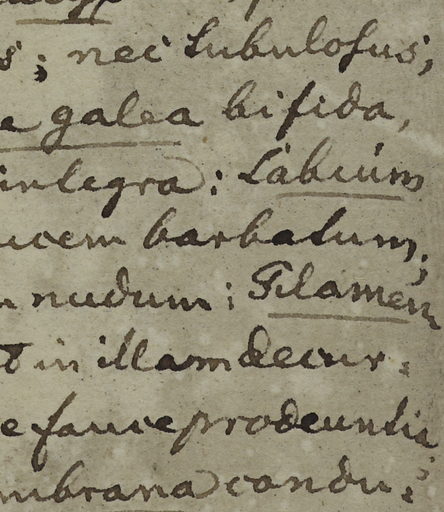 s; nec tubulosus,
galea bifida,
integra: Labium
ucem barbatum;
nudum: Filamen
in illam decur:
e fauce prodeuntia
mbrana condu: